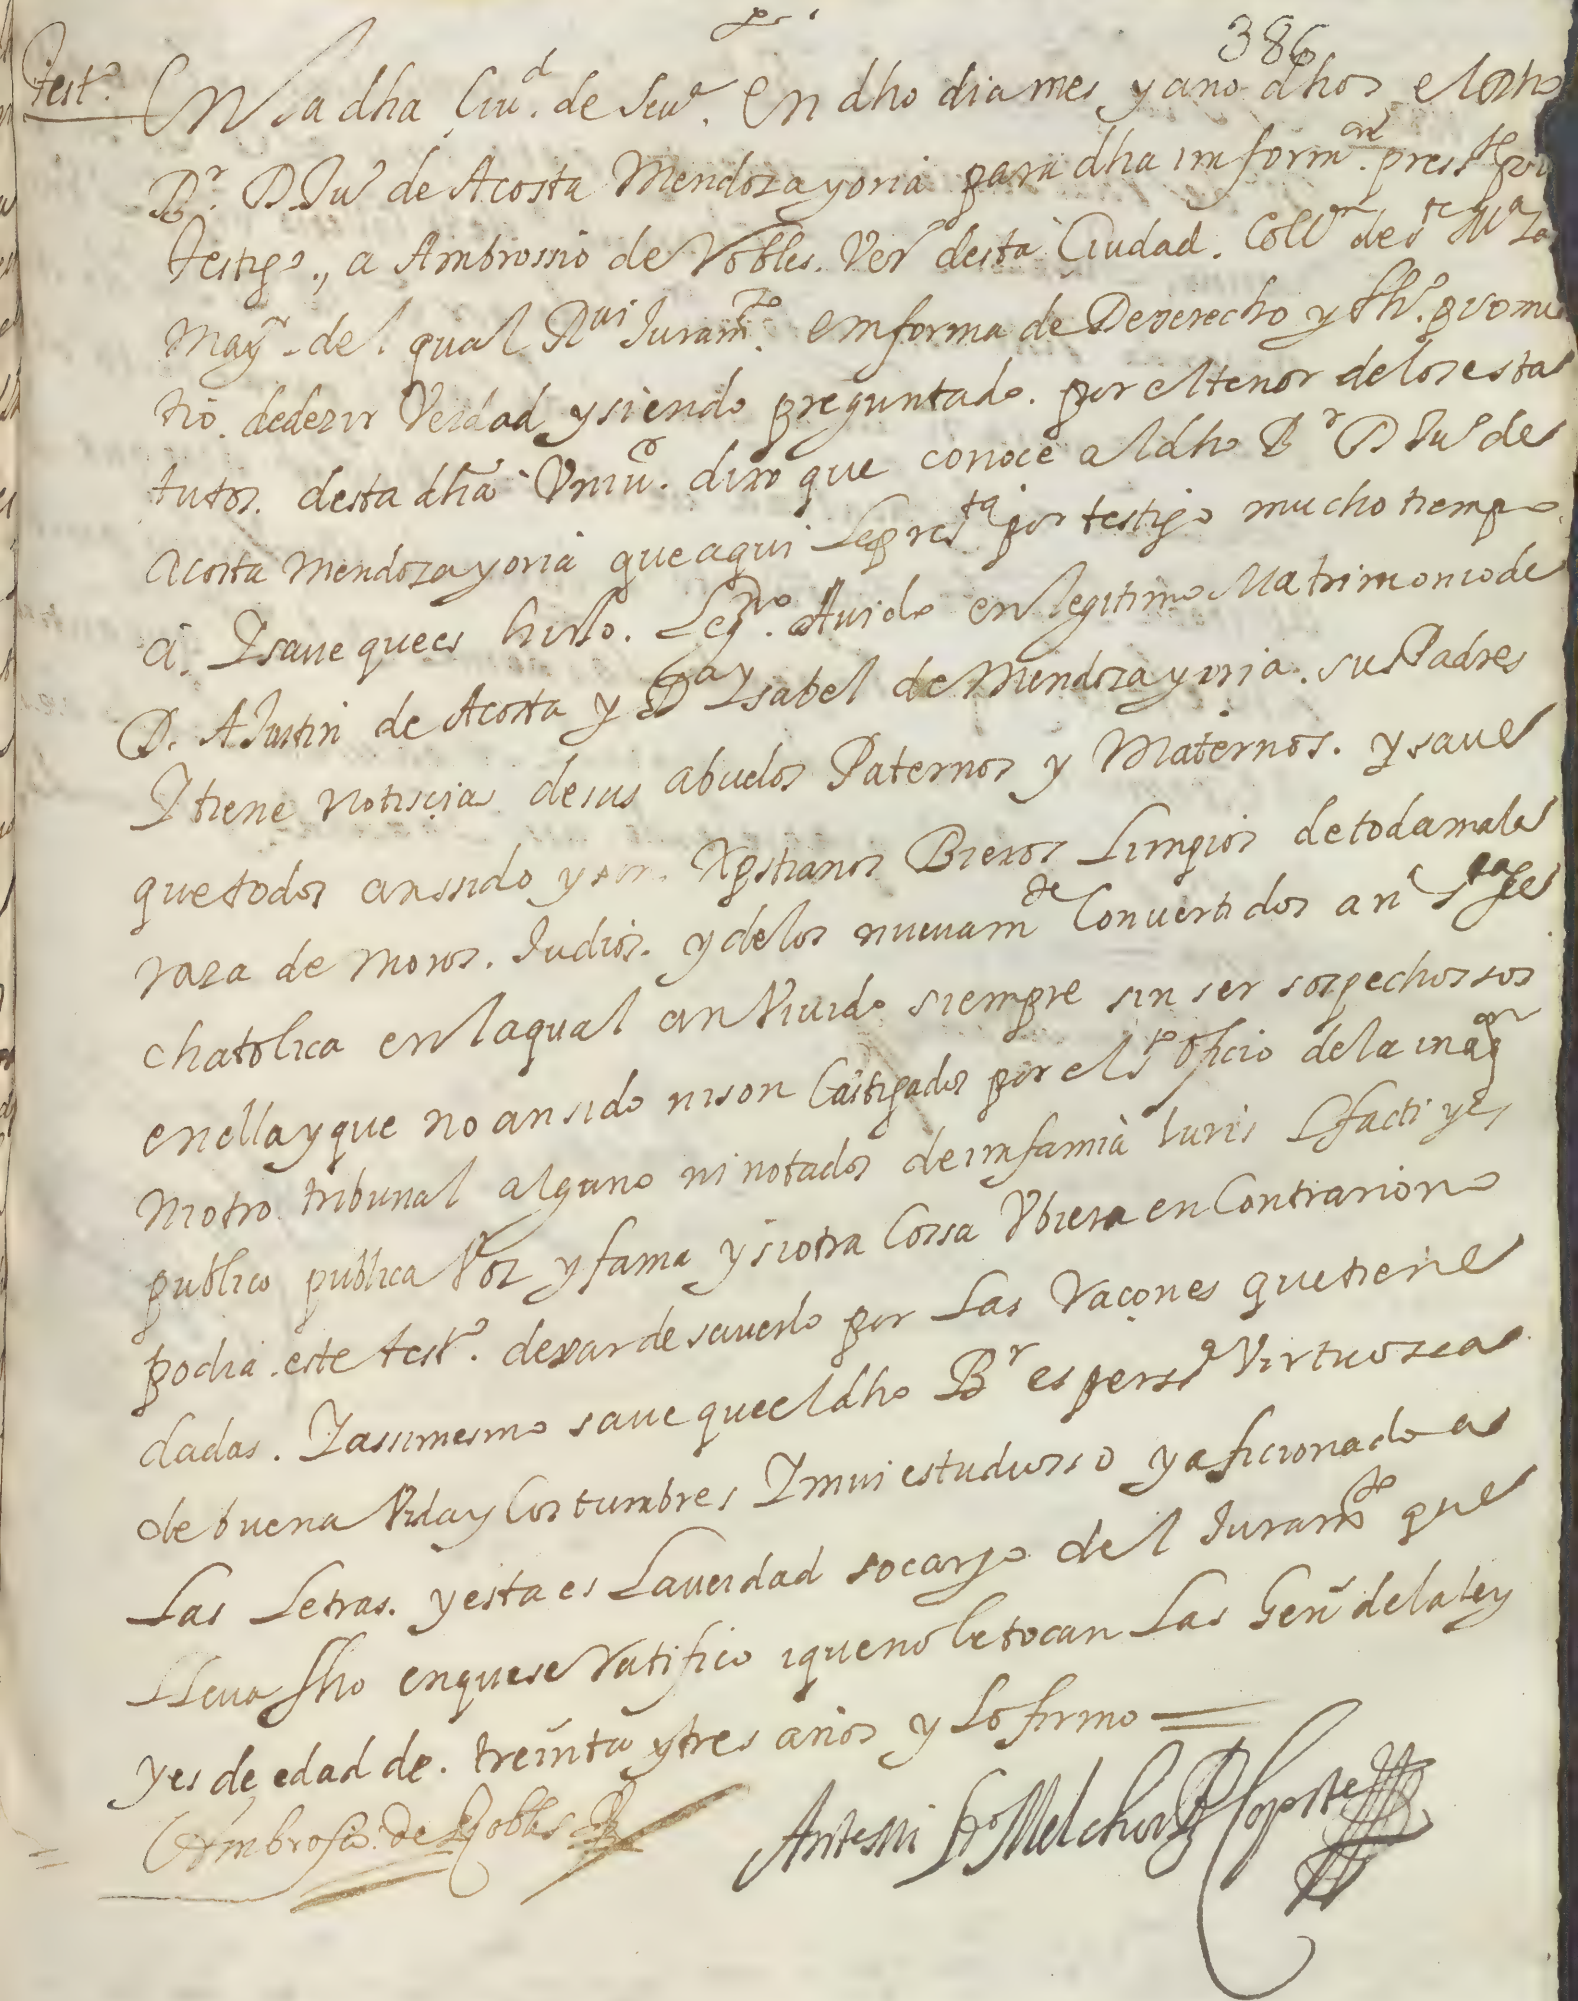 386
testº En la dha Ciud. de Seuª. En dho dia mes y año dhos el dho
Br. D Juº de Acosta Mendoza y oria para dha imformon. press.te por
testigo, a Ambrossio de Robles. Veº desta Ciudad. Collon de ste Mª la
Mayr. del qual Rui Juramto. em forma de Derecho y fhº. prome
tio. de dezir Verdad y siendo preguntado. por el tenor de los esta
tutos. desta dha Vniud. dixo que conoce al dho Br D Juº de
Acosta Mendoza y oria que aqui le presta por testigo mucho tiempo
á. I saue que es hixo. Legmo. Auido en legitimo Matrimonio de
D. AJustin de Acosta y Dª Ysabel de Mendoza y oria. sus Padres
I tiene notiscias de sus abuelos Paternos y Maternos. y saue
que todos an ssido y son. Xpstianos Biexos Limpios de toda mala
raza de moros. Judios. y de los nueuamte Conuertidos a nr sta fee
chatolica en la qual an Viuido siempre sin ser sospechossos
en ella y que no an sido ni son Castigados por el sto oficio de la inqon
ni otro tribunal alguno ni notados de imfamia Iuris Lfacti y es
publico publica Voz y fama y si otra Cossa Vbiera en Contrario no
podia este testº. dexar de sauerlo por Las Raçones que tiene
dadas. I assimesmo saue que el dho Br es persª Virtuossa
de buena Vida y Costumbres I mui estudiosso y aficionado a
Las Letras. y esta es La uerdad so cargo del Juramto que
LLeua fho en que se Ratifico i que no le tocan Las Gen de la ley
y es de edad de. treinta y tres años y Lo firmo =
Ambrosio de Robles Antemi Melchor